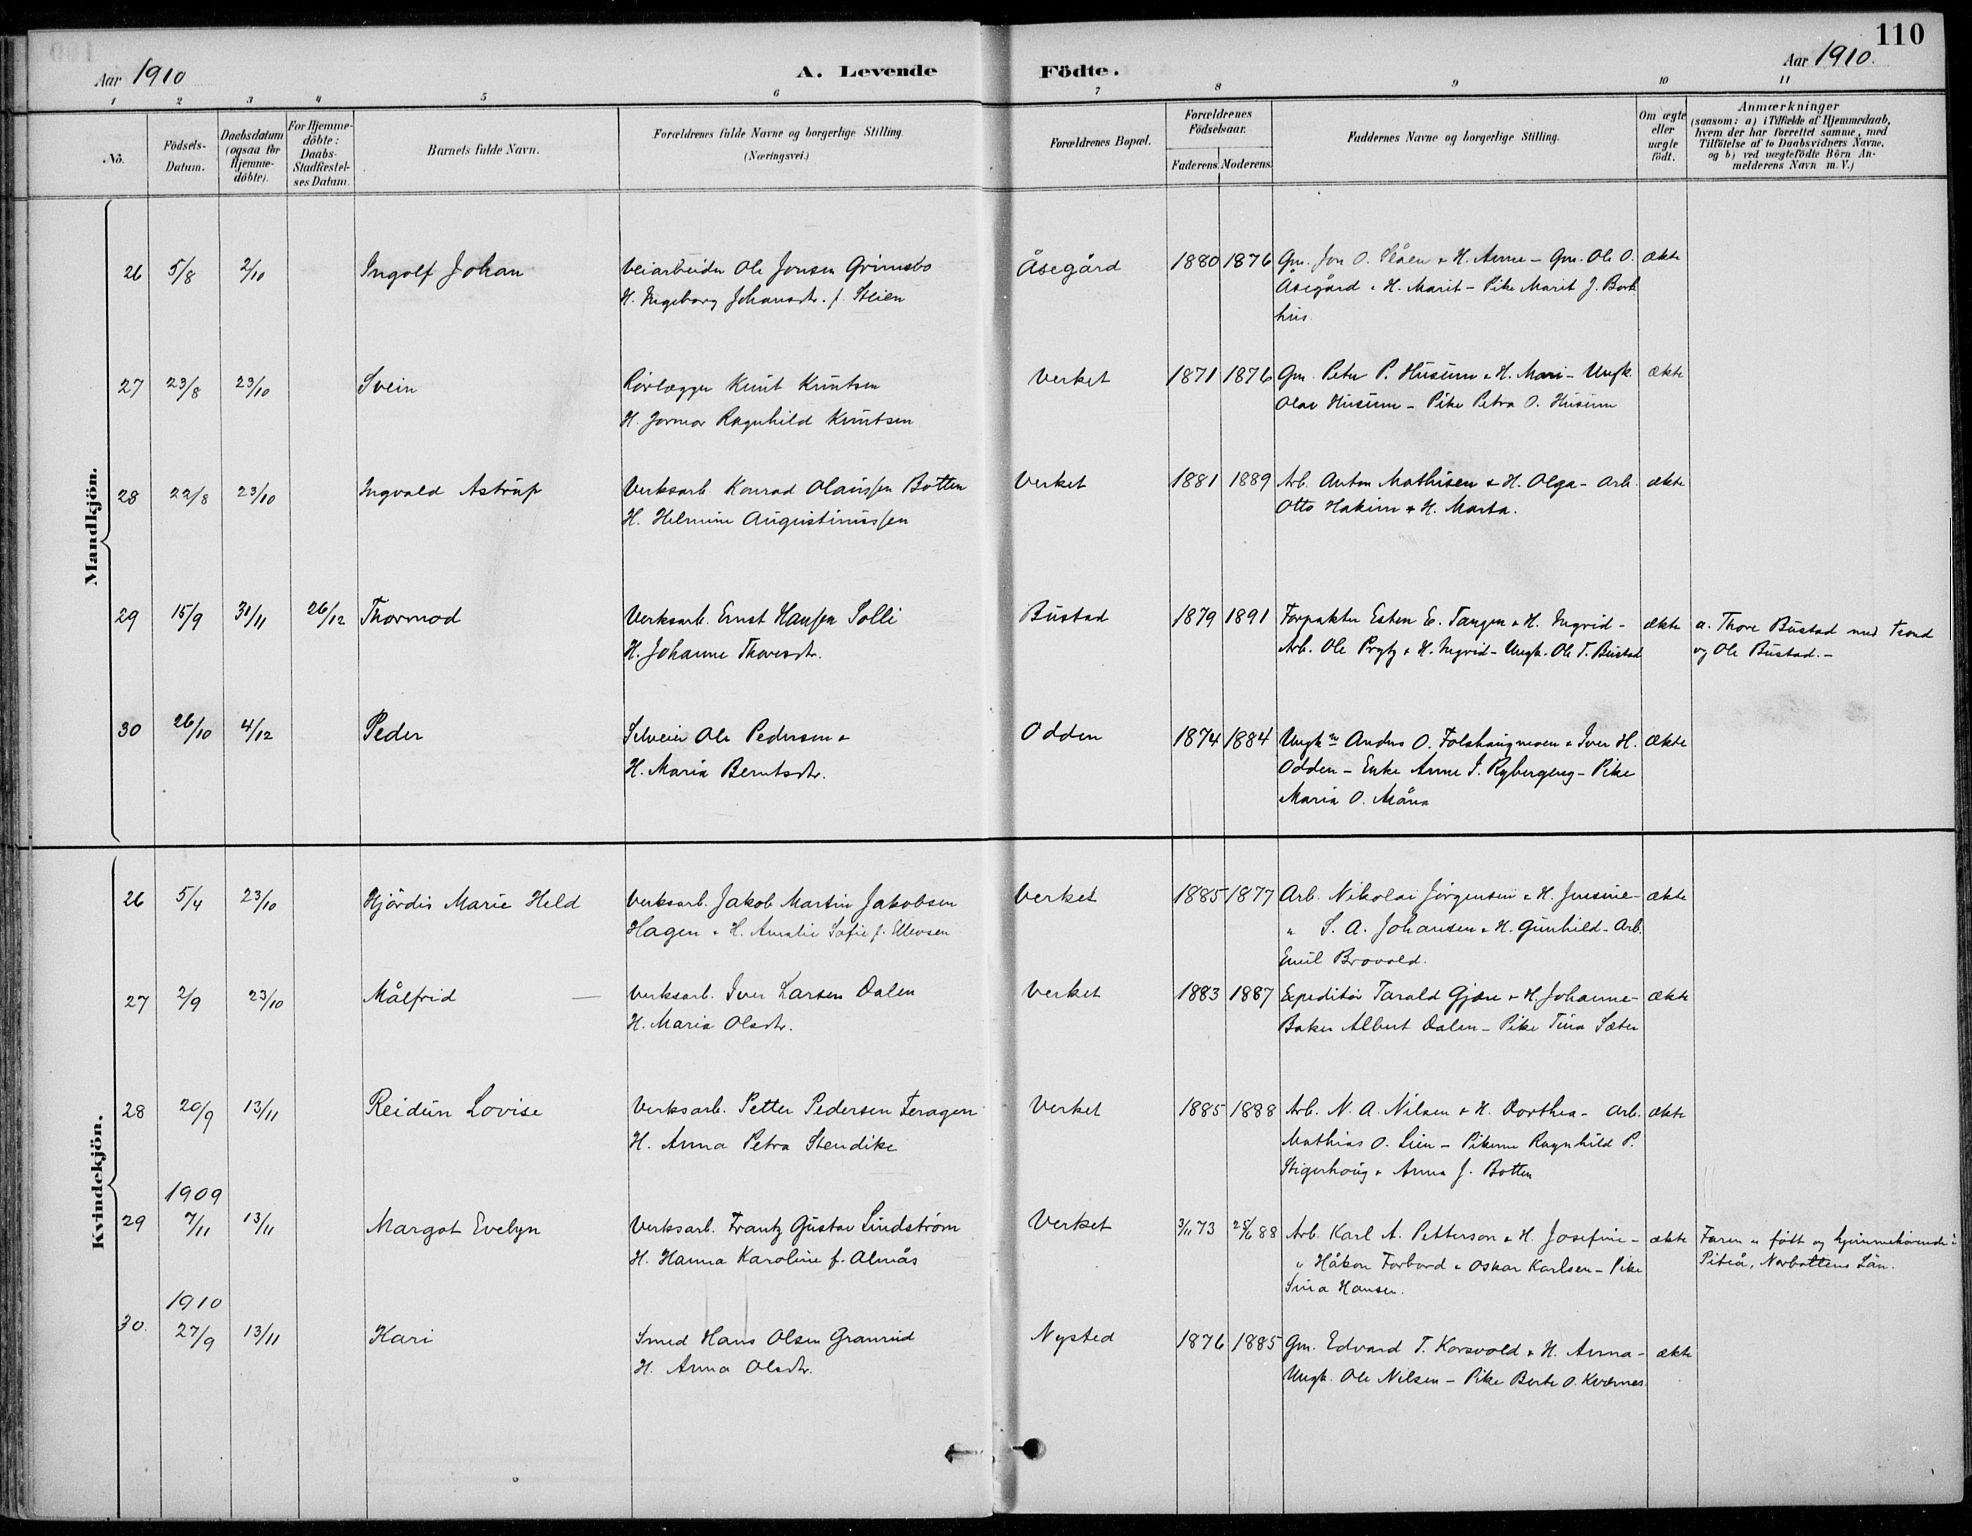 110
Aar 1910
A. Levende Födte.
Aar 1910.
1 2 3 4 5 6 7 8 9 10 11
No.
Födsels-Datum.
Daabsdatum (ogsaa for Hjemme-döbte).
For Hjemme-döbte: Daabs-Stadfæstel-ses Datum.
Barnets fulde Navn.
Forældrenes fulde Navne og borgerlige Stilling.
(Næringsvei.)
Forældrenes Bopæl.
Forældrenes Födselsaar.
Faderens. Moderens.
Faddernes Navne og borgerlige Stilling.
Om ægte eller uægte födt.
Anmærkninger
(saasom: a) i Tilfælde af Hjemmedaab,
hvem der har forrettet samme, med
Tilföielse af to Daabsvidners Navne,
og b) ved uægtefödte Börn An-
melderens Navn m. V.)
Mandkjön.
26 5/8 2/10 Ingolf Johan Veiarbeider Ole Jonsen Grimsbo Åsegård 1880 1876 Gm. Jon O. Slåen & H. Anne – Gm. Ole O. ækte
H. Ingeborg Johansdtr. f. Steien Åsegård & H. Marit – Pike Marit J. Bork
hus.
27 23/8 23/10 Svein Rørlægger Knut Knutsen Verket 1871 1876 Gm. Peter P. Husum & H. Mari – Ungk. ækte
H. Ragnhild Knutsen Olav Husum – Pike Petra O. Husum
28 22/8 23/10 Ingvald Astrup Verksarb. Konrad Olaussen Botten Verket 1881 1889 Arb. Anton Mathisen & H. Olga – Arb. ækte
H. Helmine Augustinussen Otto Hakim & H. Marta.
29 15/9 31/11 26/12 Thormod Verksarb. Ernst Hansen Solli Bustad 1879 1891 Forpakter Esten E. Tangen & H. Ingrid – ækte a. Thore Bustad med Trond
H. Johanne Thoresdtr. Arb. Ole Prytz & H. Ingrid – Ungk. Ole T. Bustad og Ole Bustad. –
30 26/10 4/12 Peder Selveier Ole Pedersen & Odden 1874 1884 Ungkm Anders O. Folshaugmoen & Iver H. ækte
H. Maria Berntsdtr. Odden – Enke Anne I. Rybergeng – Pike
Maria O. Måna
Kvindekjön.
26 5/4 23/10 Hjördis Marie Held Verksarb. Jakob Martin Jakobsen Verket 1885 1877 Arb. Nikolai Jørgensen & H. Jensine – ækte
Hagen & H. Amalie Sofie f. Ellevsen " S. A. Johansen & H. Gunhild – Arb.
Emil Brovold.
27 2/9 23/10 Målfrid — Verksarb. Iver Larsen Dalen Verket 1883 1887 Expeditør Tarald Gjære & H. Johanne – ækte
H. Maria Olsdtr. Baker Albert Dalen – Pike Tina Sæter
28 20/9 13/11 Reidun Lovise Verksarb. Petter Pedersen Feragen Verket 1885 1888 Arb. N. A. Nilsen & H. Dorthea – Arb. ækte
H. Anna Petra Stendike Mathias O. Lien – Pikerne Ragnhild P.
Stigerhoug & Anna J. Botten
1909
29 7/11 13/11 Margot Evelyn Verksarb. Frantz Gustav Lindström Verket 3/11 73 25/6 88 Arb. Karl A. Petterson & H. Josefine – ækte Faren er født og hjemmehørende i
H. Hanna Karoline f. Almås " Håkon Forbord & Oskar Karlsen – Pike Piteå, Norbottens Län.
Sina Hansen.
1910
30. 27/9 13/11 Kari Smed Hans Olsen Granrud Nysted 1876 1885 Gm. Edvard T. Korsvold & H. Anna – ækte
H. Anna Olsdtr. Ungk. Ole Nilsen – Pike Berte O. Kværnes.